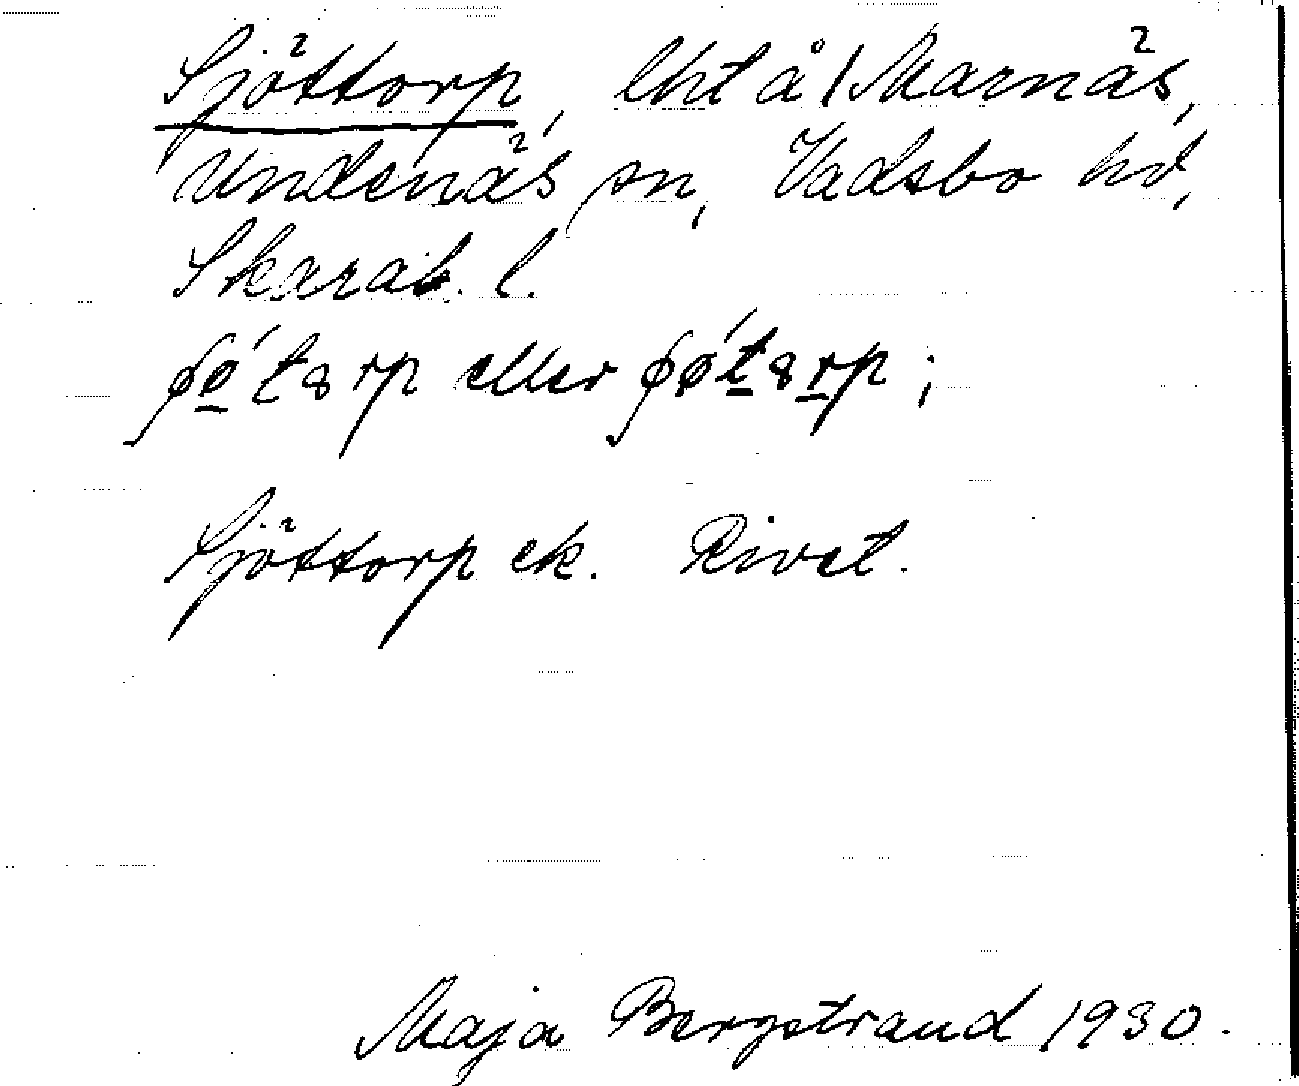 Sjöttorp, lht å 1 Marnäs,
Undenäs sn, Vadsbo hd,
Skarab. l.
eller ;
Sjöttorp ek. Rivet.
Maja Bergstrand 1930.